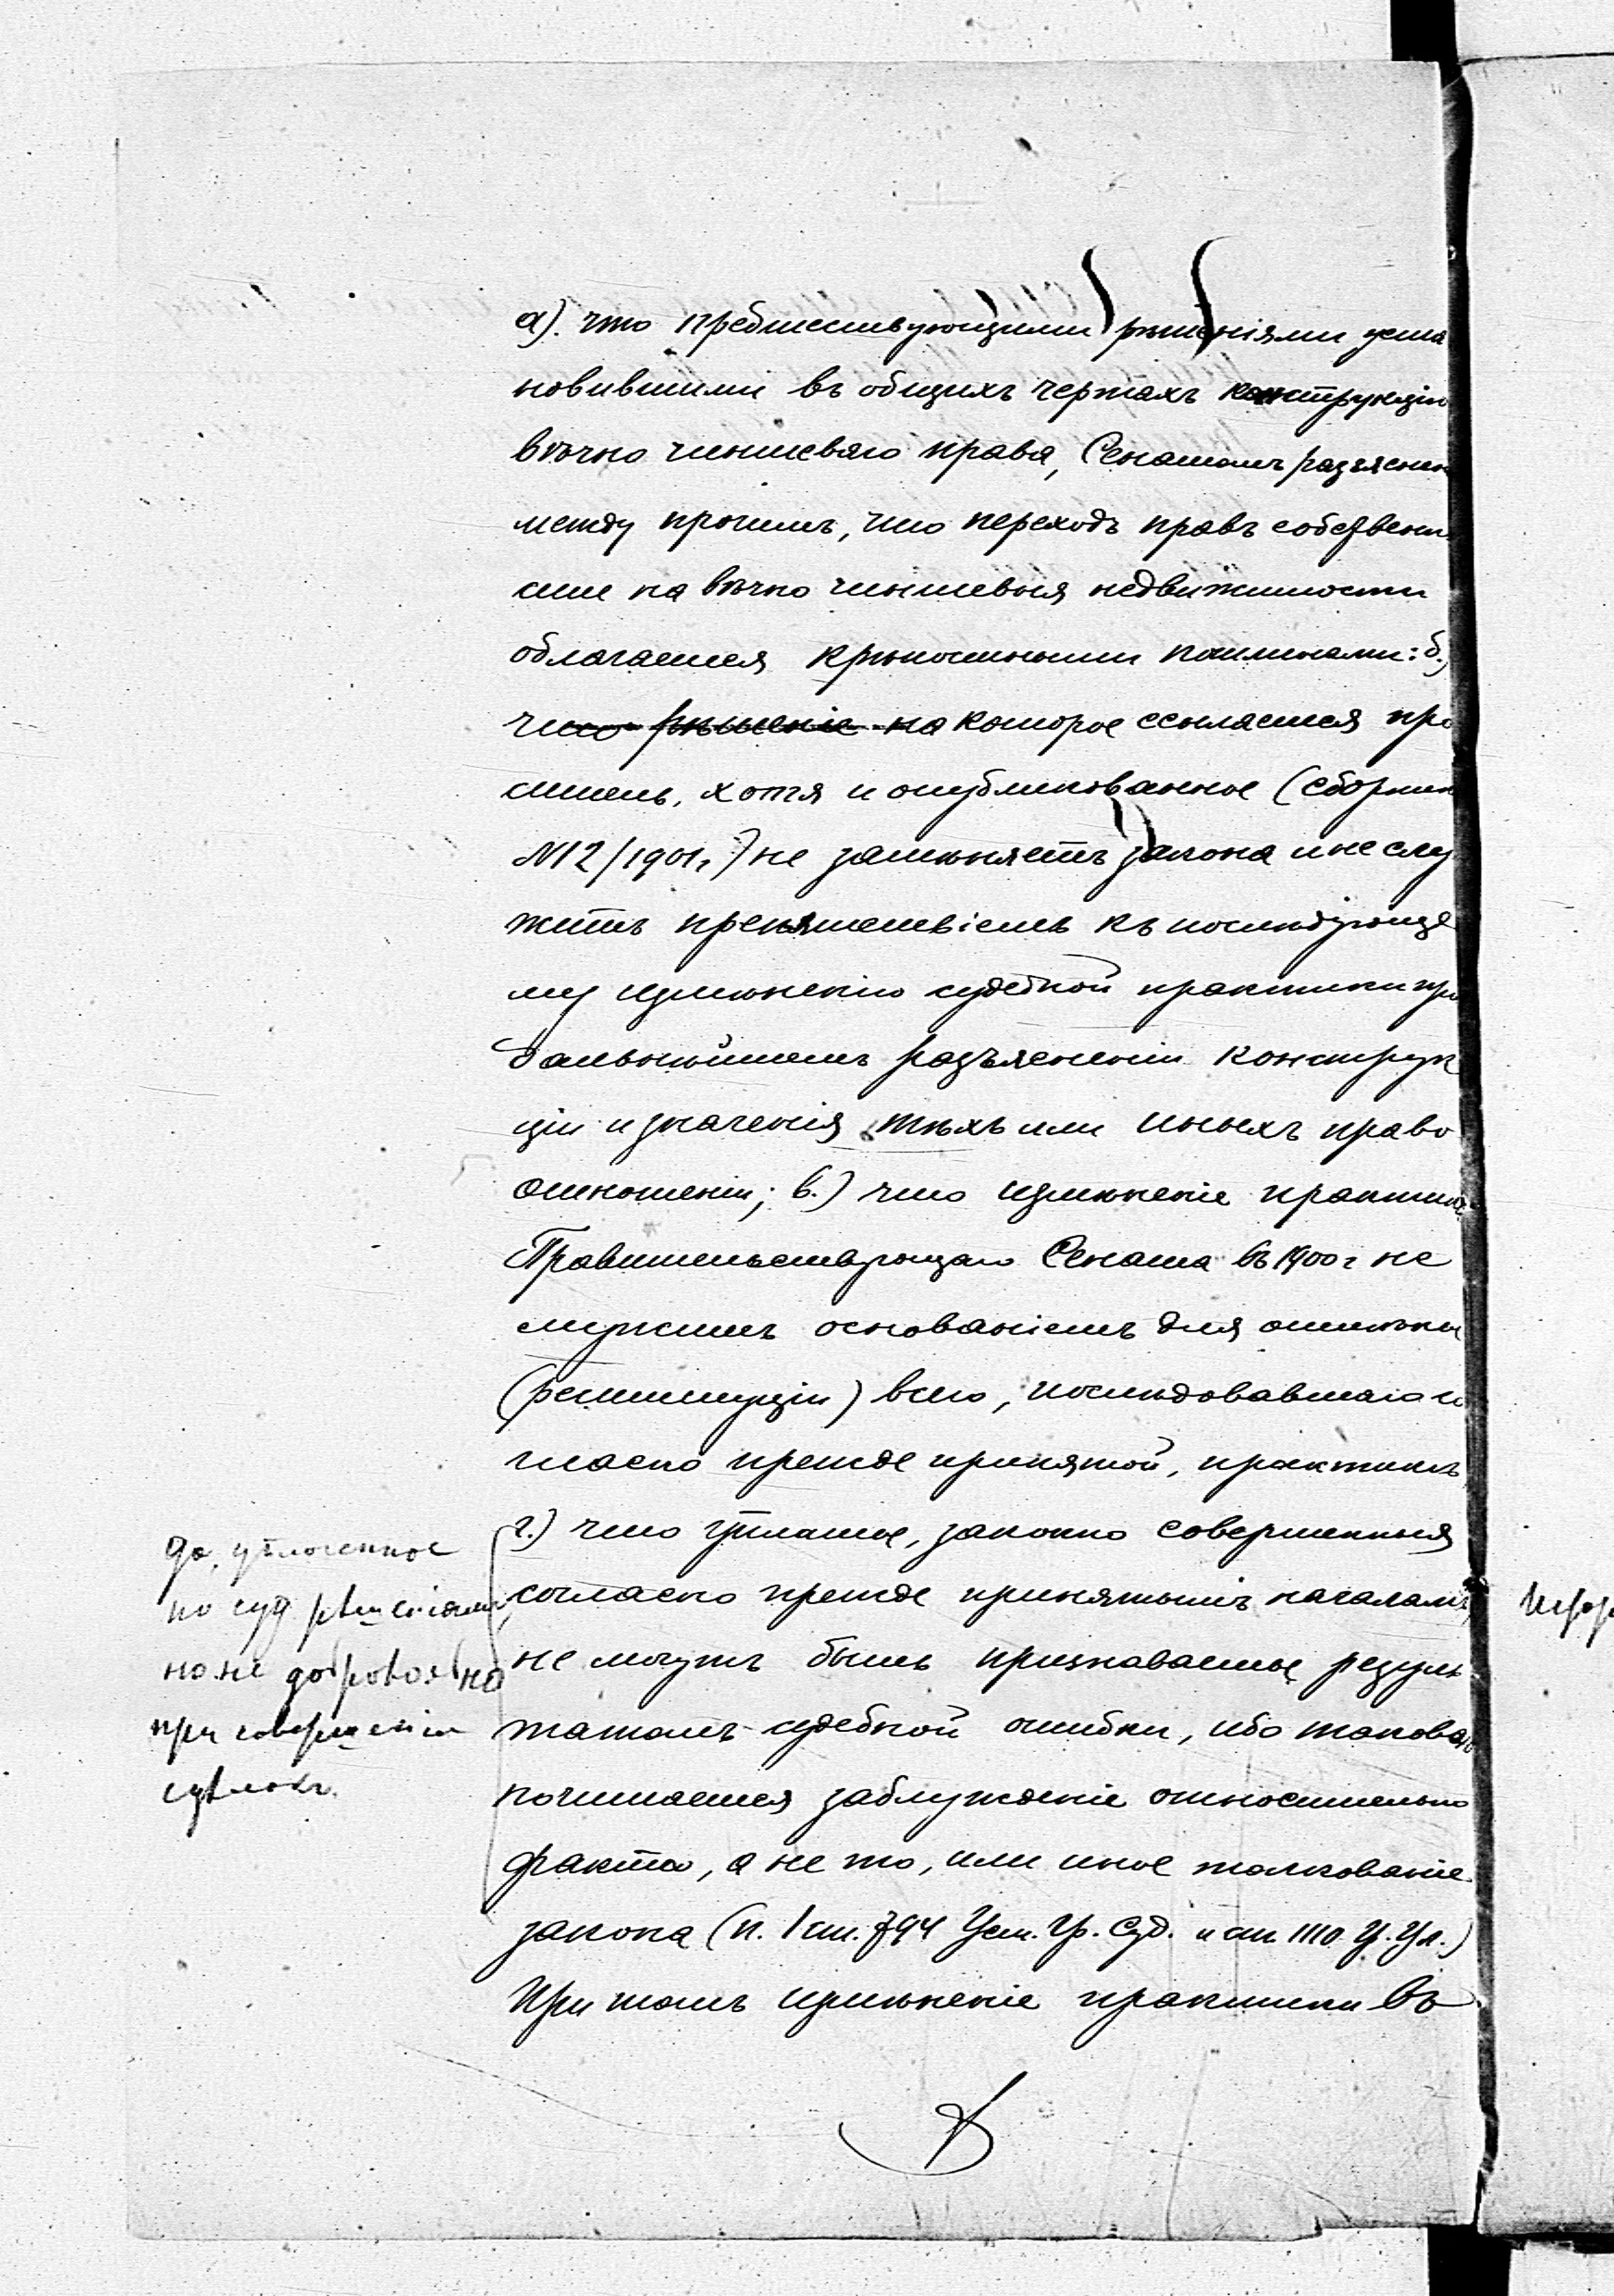 а). что предшествующими рѣшеніями уста
новившими въ общихъ чертахъ конструкцію
вѣчно чиншеваго права, Сенатомъ разъяснено
между прочимъ, что переходъ правъ собствен
сти на вѣчно чиншевыя недвижимости
облагается крѣпостными пошлинами: б.)
что рѣшеніе на которое ссылается про
ситель, хотя и опубликованное (сборник
№12/1901г.) не замѣняетъ закона и не слу
житъ препятствіемъ къ послѣдующе
му измѣненію судебной практики при
дальнѣйшемъ разъясненіи конструк
ціи и значенія тѣхъ или иныхъ право
отношеній; в.) что измѣненіе практики
Правительствующаго Сената въ 1900 г не
служитъ основаніемъ для отмѣны
(реституціи) всего, послѣдовавшаго со
гласно прежде принятой, практикѣ
г.) что уплаты, законно совершенныя
согласно прежде принятымъ началамъ,
не могутъ быть признаваемы резуль
татомъ судебной ошибки, ибо таковою
почитается заблужденіе относительно
факта, а не то, или иное толкованіе
закона (п. 1 ст. 794 Уст. Гр. Суд. и ст. 1110 У. Ул.)
При томъ измѣненіе практики въ
да, уплоченное
по суд рѣшеніямъ,
но не добровольно
при совершеніи
сдѣлокъ.